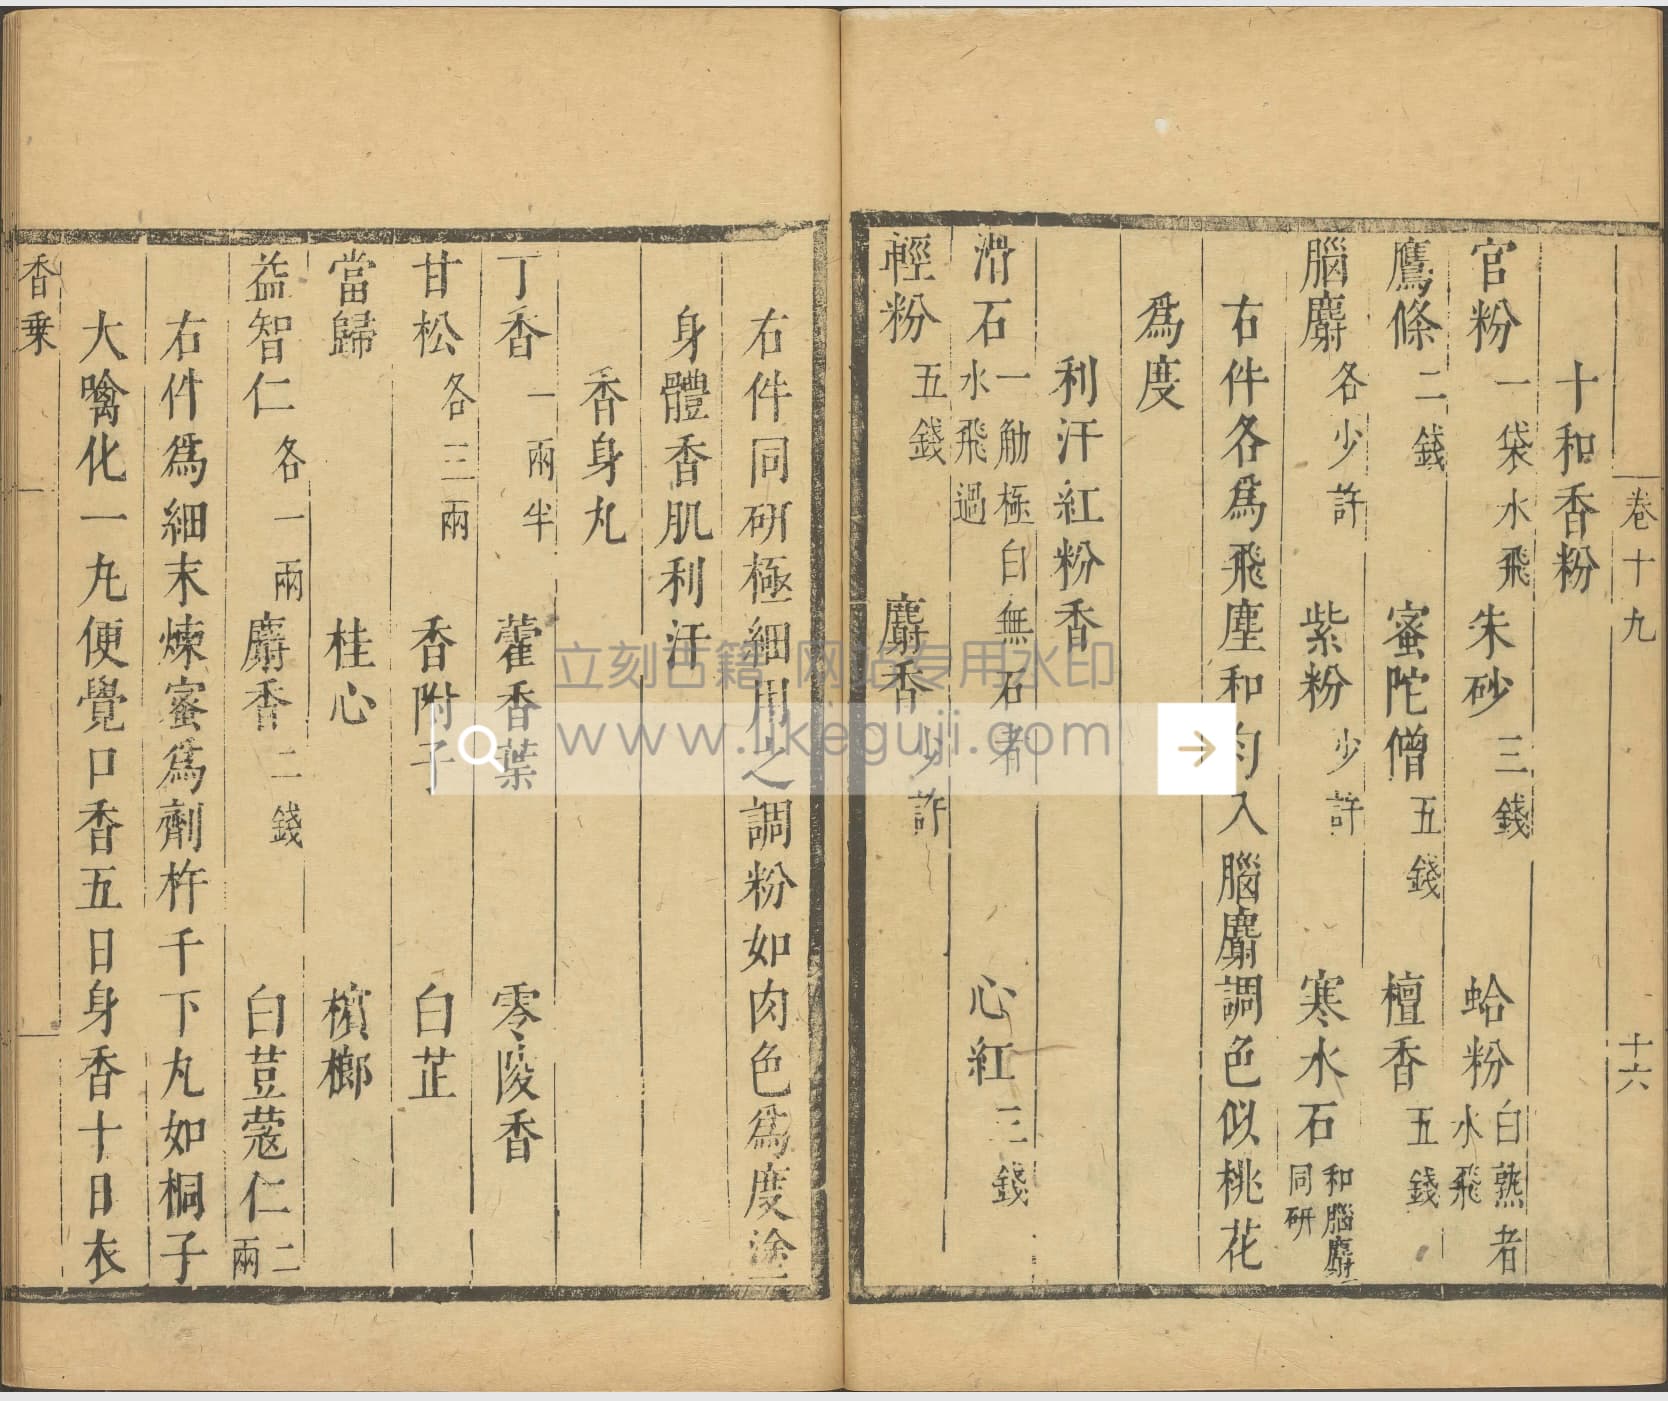 卷十九
十六
十和香粉
官粉一袋水飛 朱砂三錢 蛤粉白熟者水飛
鷹條二錢 蜜陀僧五錢 檀香五錢
腦麝各少許 紫粉少許 寒水石和腦麝同研
右件各爲飛塵和勻入腦麝調色似桃花
爲度
利汗紅粉香
滑石一觔極白無石者水飛過 心紅三錢
輕粉五錢 麝香少許
右件同研極細用之調粉如肉色爲度塗
身體香肌利汗
香身丸
丁香一兩半 藿香葉 零陵香
甘松各三兩 香附子 白芷
當歸 桂心 檳榔
益智仁各一兩 麝香二錢 白荳蔻仁二兩
右件爲細末煉蜜爲劑杵千下丸如桐子
大噙化一丸便覺口香五日身香十日衣
香乗
立刻古籍 网站专用水印
www.lkeguji.com